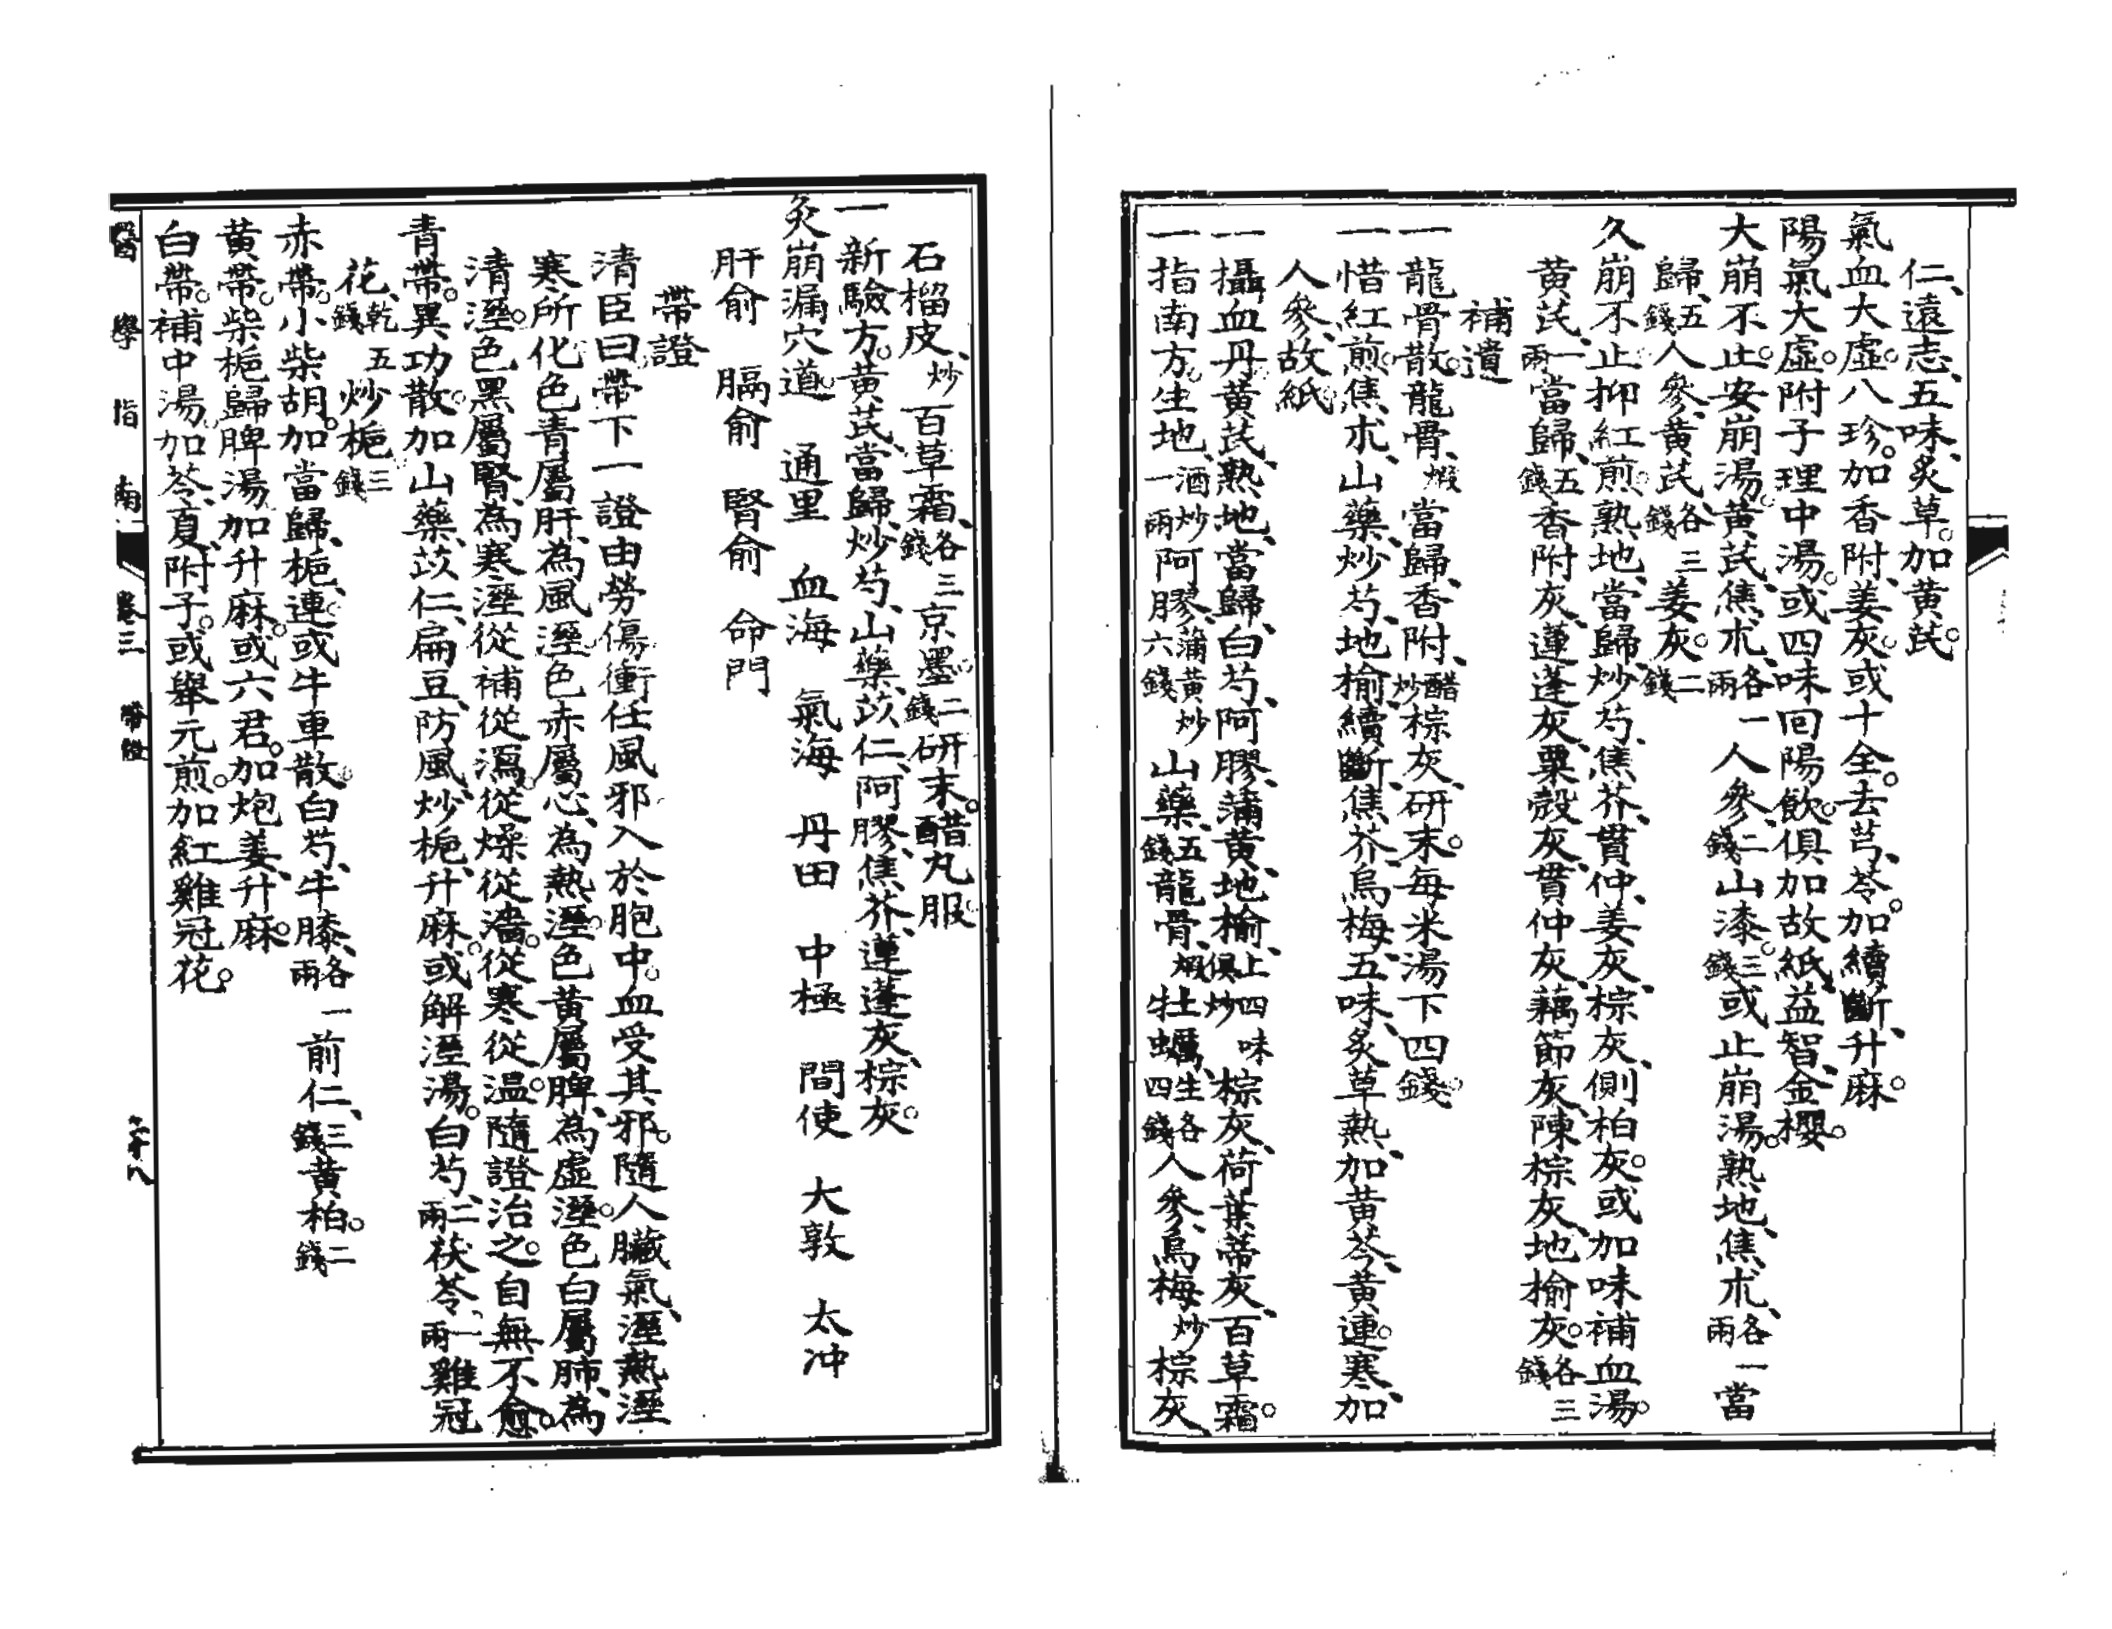 仁、遠志、五味、炙草。加黃芪。
氣血大虛。八珍。加香附、姜灰。或十全。去芎、苓。加續斷、升麻。
陽氣大虛。附子理中湯。或四味回陽飲。俱加故紙、益智、金櫻。
大崩不止。安崩湯。黃芪、焦朮、各一兩人參、二錢山漆。三錢或止崩湯。熟地、焦朮、各一兩當
歸、五錢人參、黃芪、各三錢姜灰。二錢
久崩不止抑紅煎。熟地、當歸、炒芍、焦芥、貫仲、姜灰、棕灰、側柏灰。或加味補血湯。
黃芪、一兩當歸、五錢香附灰、蓮蓬灰、粟殼灰、貫仲灰、藕節灰、陳棕灰、地榆灰。各三錢
補遺
一龍骨散。龍骨、煅當歸、香附、醋炒棕灰、研末。每米湯下四錢。
一惜紅煎。焦朮、山藥、炒芍、地榆、續斷、焦芥、烏梅、五味、炙草熱、加黃芩、黃連。寒、加
人參、故紙。
一攝血丹。黃芪、熟地、當歸、白芍、阿膠、蒲黃、地榆、上四味俱炒棕灰、荷葉蒂灰、百草霜。
一指南方。生地、酒炒一兩阿膠、蒲黃炒六錢山藥、五錢龍骨、煅牡蠣、生各四錢人參、烏梅、炒棕灰、
石榴皮、炒百草霜、各三錢京墨。二錢研末。醋丸服。
一新驗方。黃芪、當歸、炒芍、山藥、苡仁、阿膠、焦芥、蓮蓬灰、棕灰。
灸崩漏穴道。 通里 血海 氣海 丹田 中極 間使 大敦 太冲
肝俞 膈俞 腎俞 命門
帶證
清臣曰帶下一證由勞傷衝任風邪入於胞中。血受其邪。隨人臟氣、溼熱溼
寒所化色青屬肝、為風溼色赤屬心、為熱溼。色黃屬脾、為虛溼。色白屬肺、為
清溼。色黑屬腎、為寒溼從補從瀉。從燥從濇。從寒從溫。隨證治之。自無不愈。
青帶。異功散。加山藥、苡仁、扁豆、防風、炒梔、升麻。或解溼湯。白芍、二兩茯苓、一兩雞冠
花、乾五錢炒梔三錢
赤帶。小柴胡。加當歸、梔、連。或牛車散。白芍、牛膝、各一兩前仁、三錢黃柏。二錢
黃帶。柴梔歸脾湯加升麻。或六君。加炮姜、升麻。
白帶。補中湯。加苓、夏、附子。或舉元煎。加紅雞冠花。
醫學指南 卷三 帶證 二十八